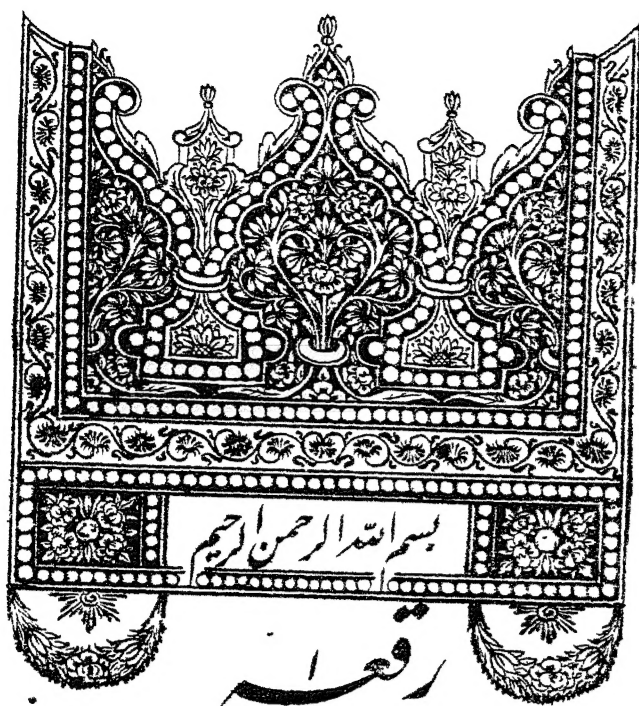 بسم الله الرحمن الرحيم
رقعہ ۱